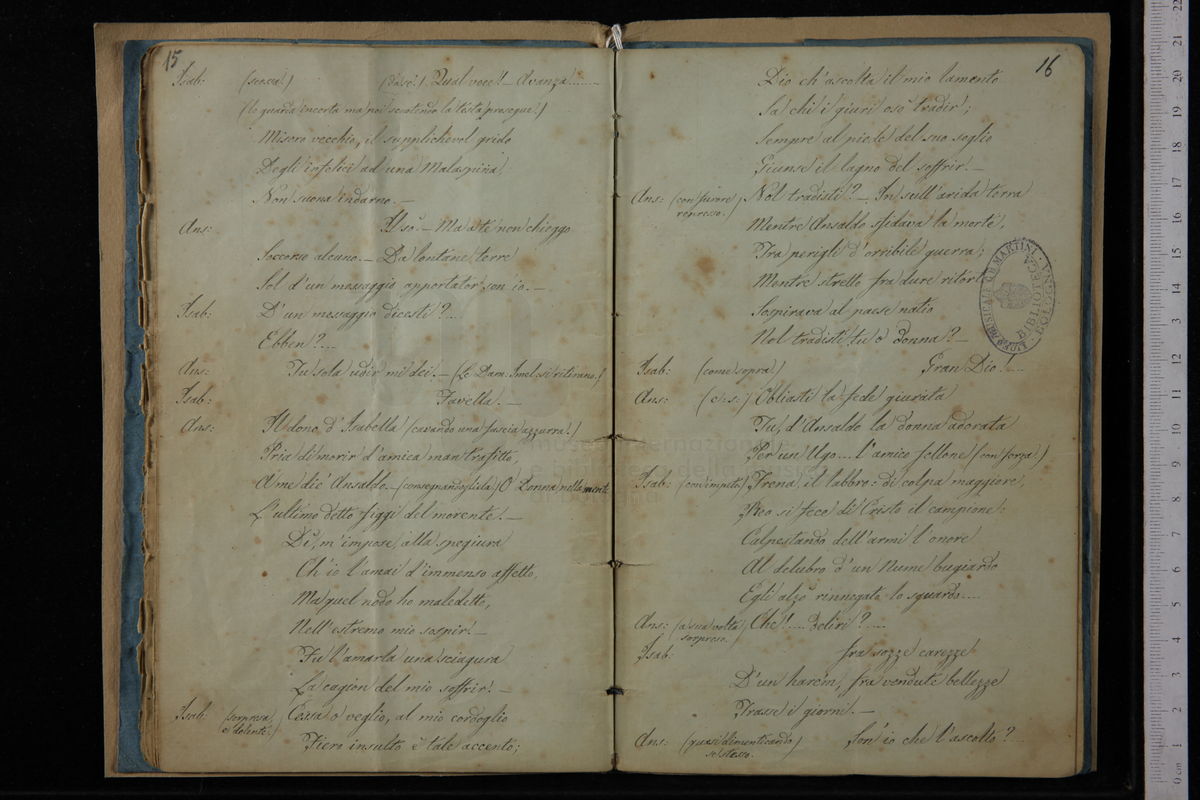 15
Isab: (scossa!) (Da sè!) Qual voce!! – Avanza!......
(lo guarda incerta ma poi scuotendo la testa prosegue.)
Misero vecchio, il supplichevol grido
Degli infelici ad una Malaspina
Non suona indarno. –
Ans: Il so. – Ma a te non chieggo
Soccorso alcuno. – Da lontane terre
Sol d'un messaggio apportator son io. –
Isab: D'un messaggio dicesti?...
Ebben?...
Ans: Tu sola udir mi dei. – (Le Dam: Imel: si ritirano.)
Isab: Favella. –
Ans: Il dono d'Isabella (cavando una fascia azzurra.)
Pria di morir d'amica man trafitto,
A me diè Ansaldo – (consegnandogliela) O Donna nella mente
L'ultimo detto figgi del morente. –
Di', m'impose, alla spergiura
Ch'io l'amai d'immenso affetto,
Ma quel nodo ho maledetto,
Nell'estremo mio sospir! –
Fu l'amarla una sciagura
La cagion del mio soffrir! –
Isab: (sorpresa e dolente.) Cessa o veglio, al mio cordoglio
Fiero insulto è tale accento;
16
Dio ch'ascolta il mio lamento
Sa chi i giuri osò tradir;
Sempre al piede del suo soglio
Giunse il lagno del soffrir. –
Ans: (con furore represso.) Nol tradisti? – In sull'arida terra
Mentre Ansaldo sfidava la morte,
Fra perigli d'orribile guerra;
Mentre stretto fra dure ritorte
Sospirava al paese natio
Nol tradisti tu o donna? –
Isab: (come sopra) Gran Dio!....
Ans: (c: s:) Obliasti la fede giurata
Tu, d'Ansaldo la donna adorata
Per un Ugo.... l'amico fellone (con forza.)
Isab: (con impeto) Frena il labbro: di colpa maggiore,
Reo si fece di Cristo il campione:
Calpestando dell'armi l'onore
Al delubro d'un Nume bugiardo
Egli alzò rinnegato lo sguardo....
Ans: (a sua volta sorpreso.) Che!!.... Deliri?....
Isab: fra sozze carezze
D'un harem, fra vendute bellezze
Trasse i giorni. –
Ans: (quasi dimenticando se stesso.) Son io che l'ascolto?...
BIBLIOTECA